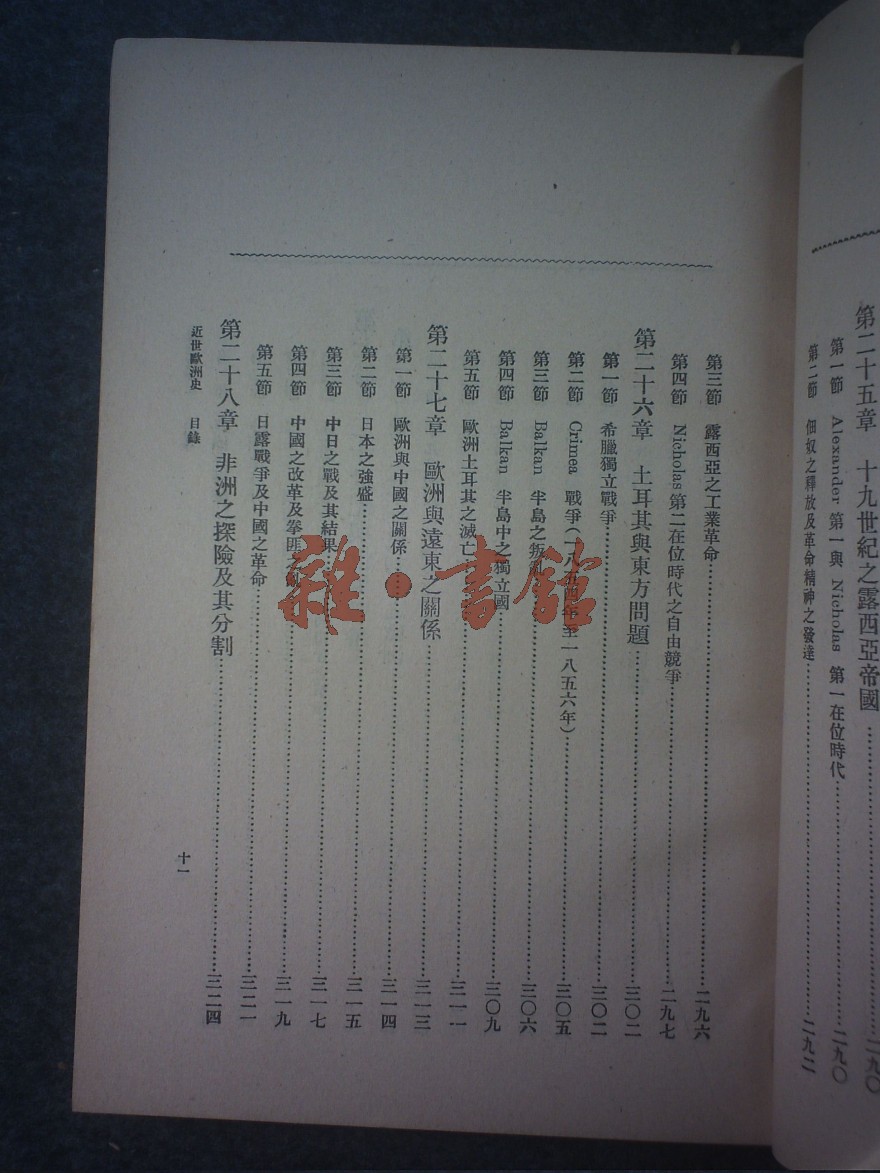 第二十五章 十九世紀之露西亞帝國 二九〇
第一節 Alexander 第一與 Nicholas 第一在位時代 二九〇
第二節 佃奴之釋放及革命精神之發達 二九二
第三節 露西亞之工業革命 二九六
第四節 Nicholas 第二在位時代之自由競爭 二九七
第二十六章 土耳其與東方問題 三〇二
第一節 希臘獨立戰爭 三〇二
第二節 Crimea 戰爭(一八五四年至一八五六年) 三〇五
第三節 Balkan 半島之叛 三〇六
第四節 Balkan 半島中之獨立國 三〇九
第五節 歐洲土耳其之滅亡 三一一
第二十七章 歐洲與遠東之關係 三一三
第一節 歐洲與中國之關係 三一四
第二節 日本之強盛 三一五
第三節 中日之戰及其結果 三一七
第四節 中國之改革及拳匪之 三一九
第五節 日露戰爭及中國之革命 三二一
第二十八章 非洲之探險及其分割 三二四
近世歐洲史 目錄 十一
雜·書館